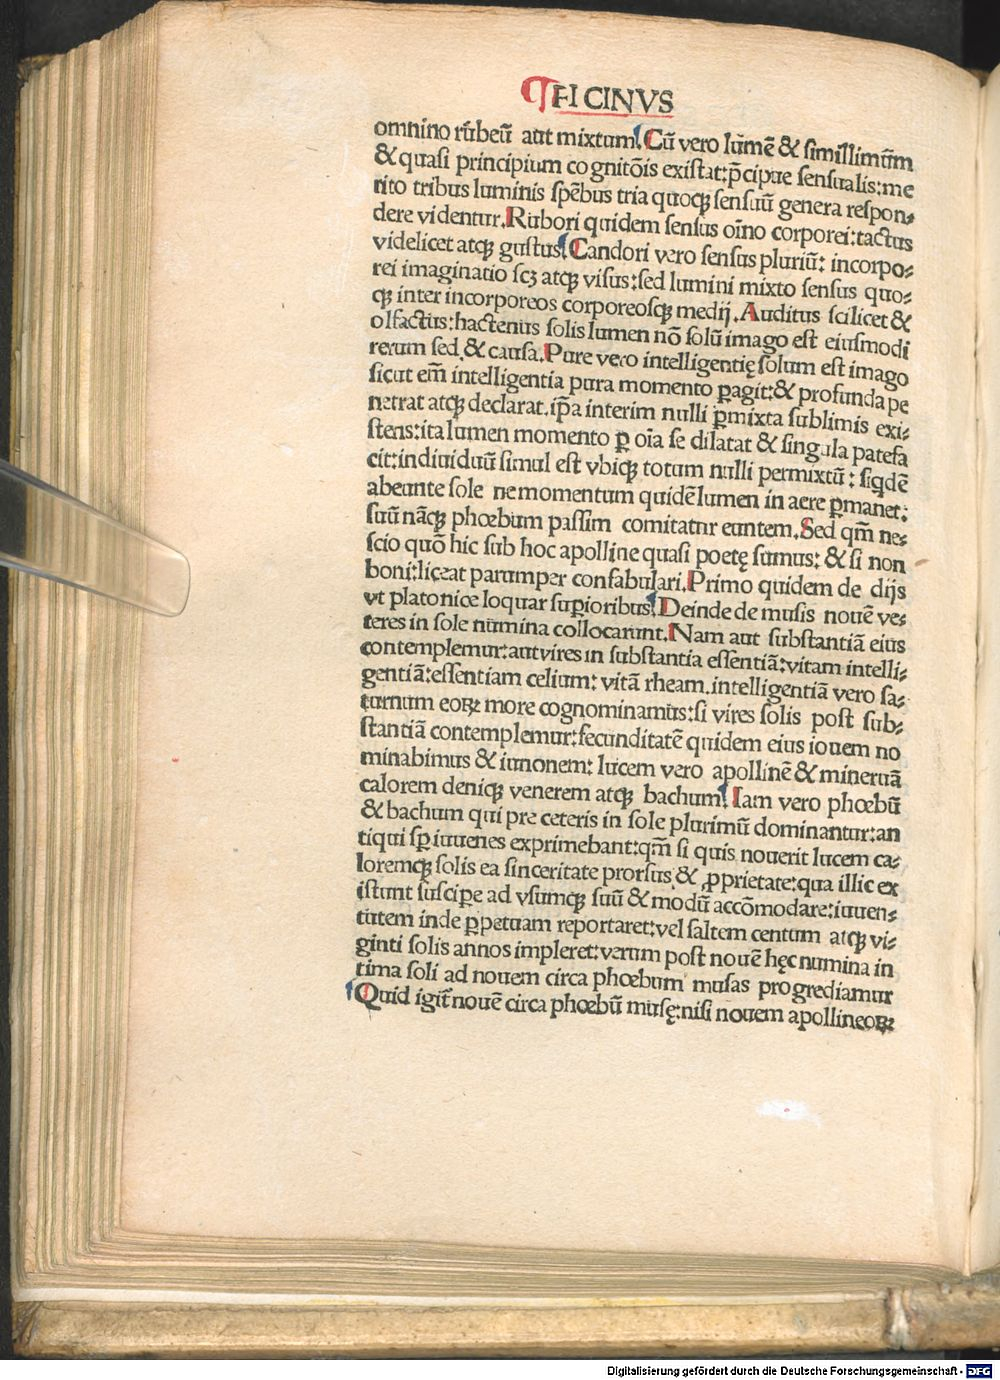 ¶FICINVS
omnino rubeū aut mixtum. Cū vero lumē & simillimūm
& quasi principium cognitōis existat: p̄cipue sensualis: me
rito tribus luminis spēbus tria quoqꝫ sensuū genera respon⸗
dere videntur. Rubori quidem sensus oīno corporei: tactus
videlicet atqꝫ gustus. Candori vero sensus pluriū: incorpo⸗
rei imaginatio scꝫ atqꝫ visus: sed lumini mixto sensus quo⸗
qꝫ inter incorporeos corporeosqꝫ medij. Auditus scilicet &
olfactus: hactenus solis lumen nō solū imago est eiusmodi
rerum sed & causa. Pure vero intelligentię solum est imago
sicut em̄ intelligentia pura momento ꝑagit: & profunda pe
netrat atqꝫ declarat. ip̄a interim nulli ꝑmixta sublimis exi⸗
stens: ita lumen momento ꝑ oīa se dilatat & singula patefa
cit: indiuiduū simul est vbiqꝫ totum nulli permixtū: siqdē
abeunte sole ne momentum quidē lumen in aere ꝑmanet:
suū nāqꝫ phœbum passim comitatur euntem. Sed qm̄ ne⸗
scio quō hic sub hoc apolline quasi poetę sumus: & si non
boni: liceat parumper confabulari. Primo quidem de dijs
vt platonice loquar suꝑioribus. Deinde de musis nouē ve⸗
teres in sole numina collocarunt. Nam aut substantiā eius
contemplemur: aut vires in substantia essentiā: vitam intelli⸗
gentiā: essentiam celium: vitā rheam. intelligentiā vero sa⸗
turnum eoꝝ more cognominamus: si vires solis post sub⸗
stantiā contemplemur: fecunditatē quidem eius iouem no
minabimus & iunonem: lucem vero apollinē & mineruā
calorem deniqꝫ venerem atqꝫ bachum. Iam vero phœbū
& bachum qui pre ceteris in sole plurimū dominantur: an
tiqui sꝑ iuuenes exprimebant: qm̄ si quis nouerit lucem ca⸗
loremqꝫ solis ea sinceritate prorsus & ꝓprietate: qua illic ex
istunt suscipe ad vsumqꝫ suū & modū accōmodare: iuuen⸗
tutem inde ꝑpetuam reportaret: vel saltem centum atqꝫ vi⸗
ginti solis annos impleret: verum post nouē hęc numina in
tima soli ad nouem circa phœbum musas progrediamur
Quid igit̄ nouē circa phœbū musę: nisi nouem apollineoꝝ
Digitalisierung gefördert durch die Deutsche Forschungsgemeinschaft - DFG